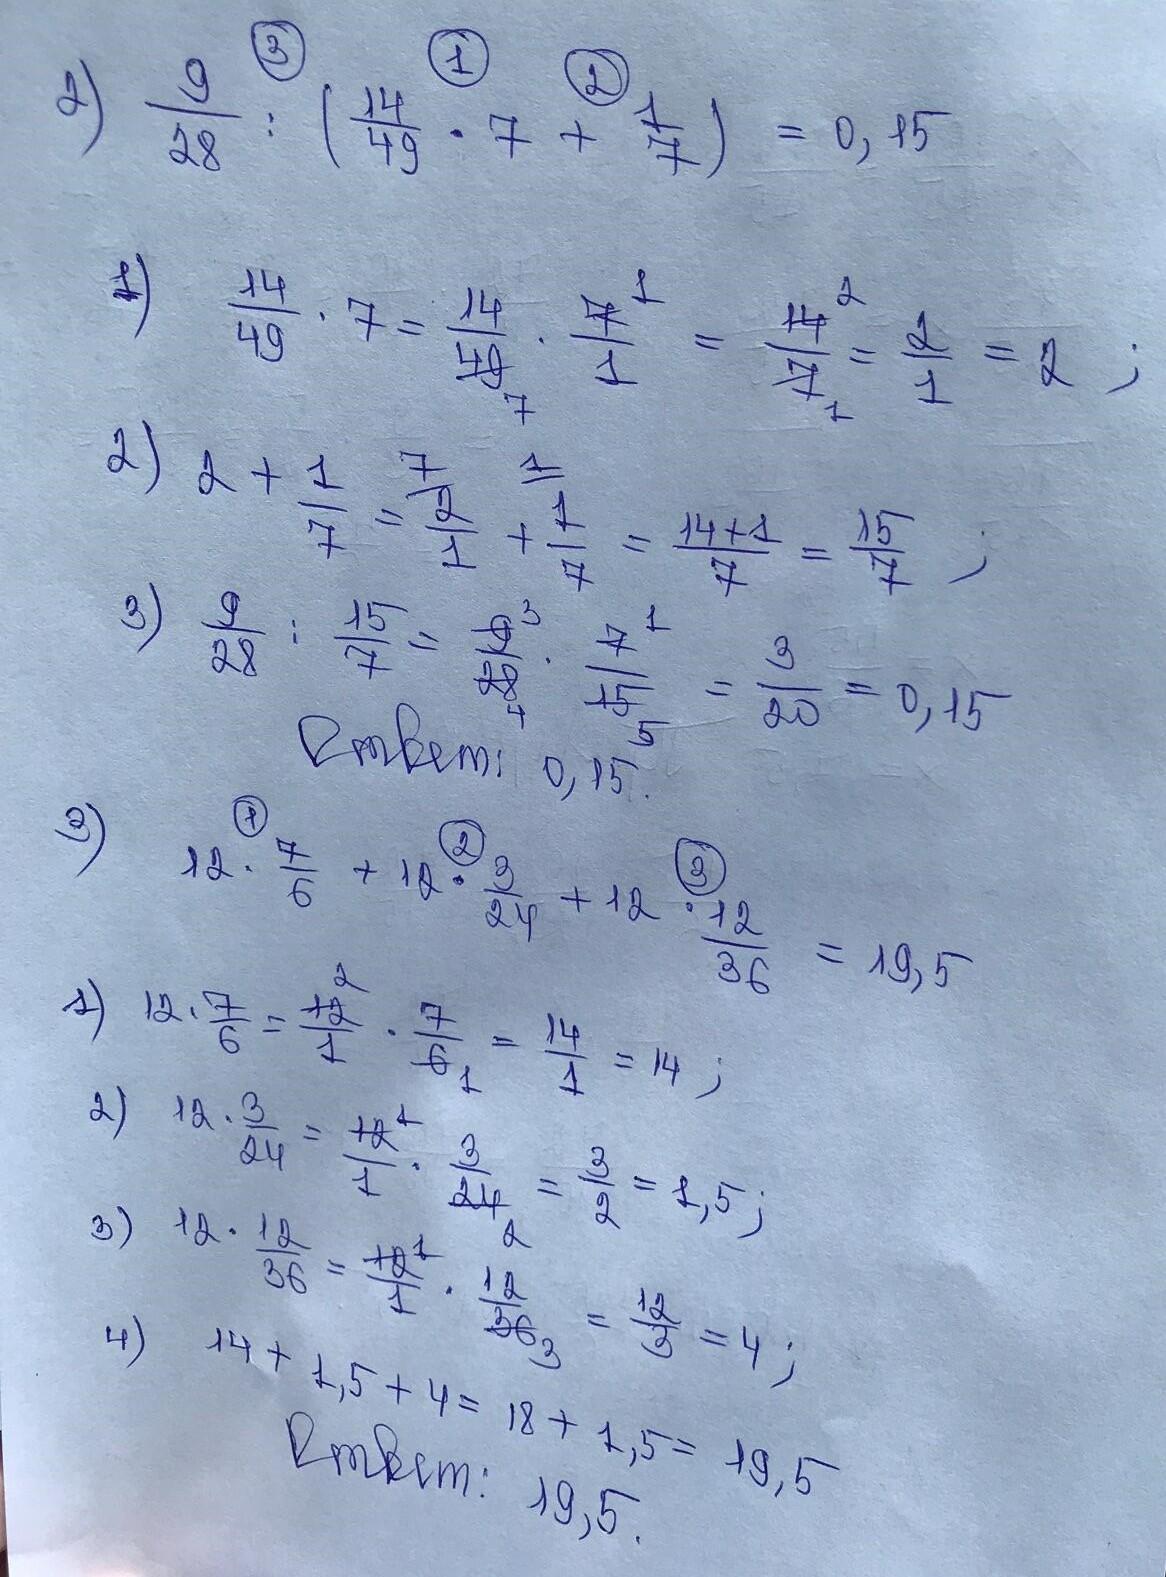 2) 9/28 : (14/49 · 7 + 1/7) = 0,15
③ ① ②
1) 14/49 · 7 = 14/49 7 · 7/1 1 = 14/7 2 1 = 2/1 = 2 ;
2) 2 + 1/7 = 7 2/1 + 1 1/7 = 14+1/7 = 15/7 ;
3) 9/28 : 15/7 = 9/28 3 4 · 7/15 1 5 = 3/20 = 0,15
Ответ: 0,15.
3) 12 · 7/6 + 12 · 3/24 + 12 · 12/36 = 19,5
① ② ③
1) 12 · 7/6 = 12/1 2 · 7/6 1 = 14/1 = 14 ;
2) 12 · 3/24 = 12/1 1 · 3/24 2 = 3/2 = 1,5 ;
3) 12 · 12/36 = 12/1 1 · 12/36 3 = 12/3 = 4 ;
4) 14 + 1,5 + 4 = 18 + 1,5 = 19,5
Ответ: 19,5.